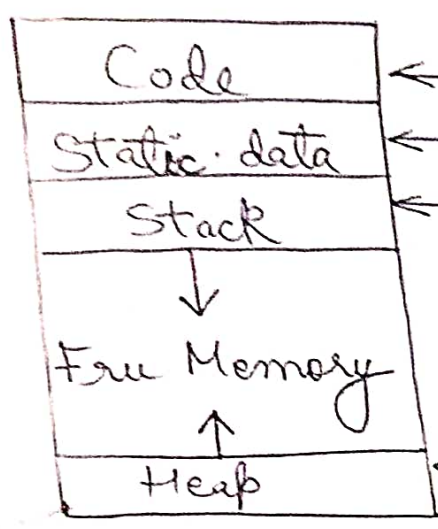 Code
Static data
Stack
Free Memory
Heap